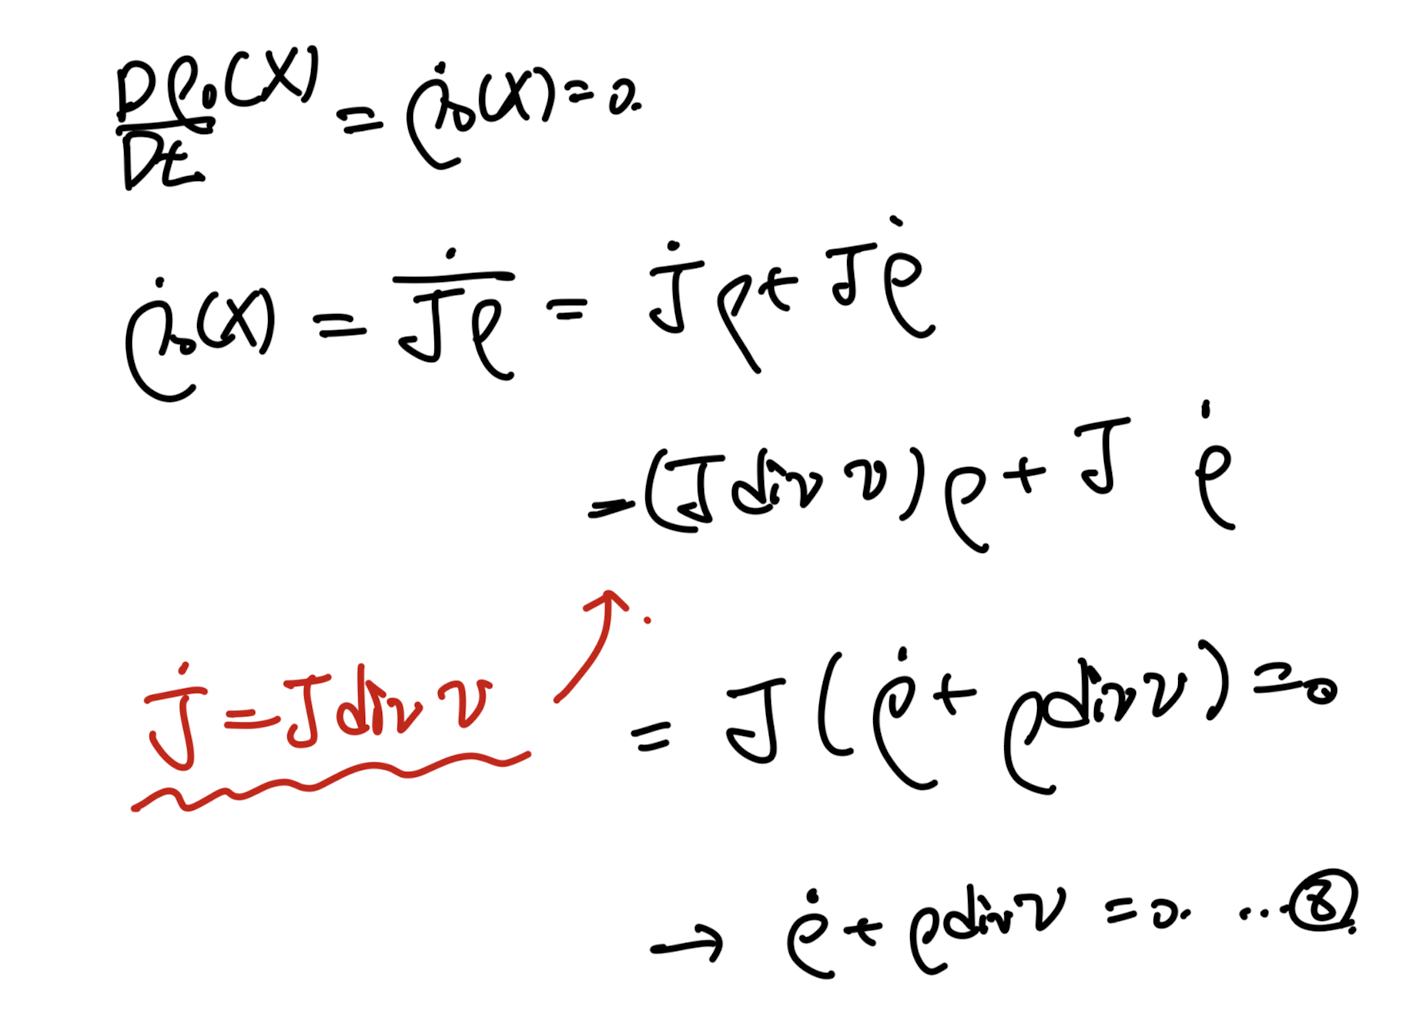 Dρ₀(X)/Dt = ρ̇₀(X) = 0.
ρ̇₀(X) = \dot{\overline{Jρ}} = J̇ρ + Jρ̇
= (J div v)ρ + J ρ̇
J̇ = J div v
= J(ρ̇ + ρ div v) = 0
→ ρ̇ + ρ div v = 0. ...⑧